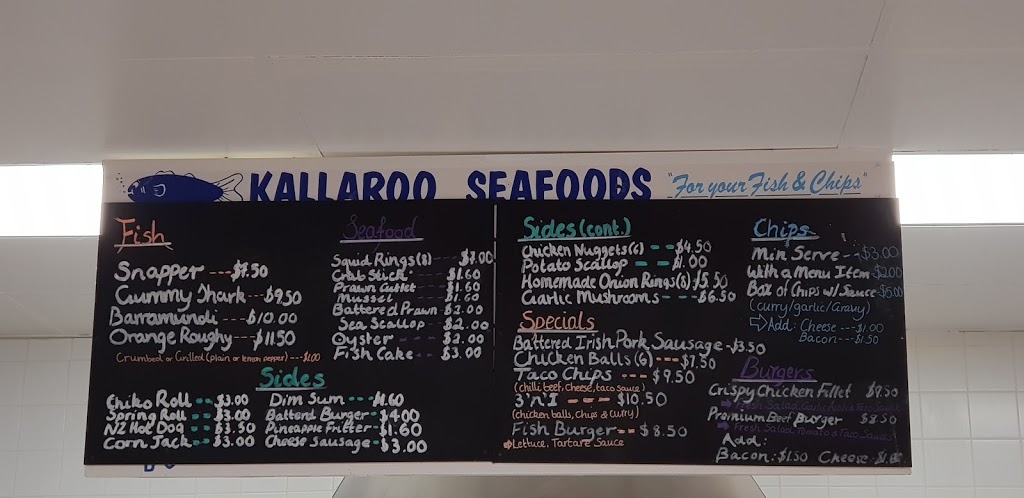 KALLAROO SEAFOODS "For your Fish & Chips"
Fish
Snapper --- $7.50
Gummy Shark --- $9.50
Barramundi --- $10.00
Orange Roughy --- $11.50
Crumbed or Grilled (plain or lemon pepper) --- $1.00
Seafood
Squid Rings (8) $7.00
Crab Stick $1.60
Prawn Cutlet $1.60
Mussel $1.60
Battered Prawn $2.00
Sea Scallop $2.00
Oyster $2.00
Fish Cake $3.00
Sides
Chiko Roll -- $3.00
Spring Roll -- $3.00
NZ Hot Dog -- $3.50
Corn Jack -- $3.00
Dim Sum --- $1.60
Battered Burger - $4.00
Pineapple Fritter - $1.60
Cheese Sausage - $3.00
Sides (cont.)
Chicken Nuggets (6) -- $4.50
Potato Scallop -- $1.00
Homemade Onion Rings (8) $5.50
Garlic Mushrooms --- $6.50
Specials
Battered Irish Pork Sausage - $3.50
Chicken Balls (6) --- $7.50
Taco Chips --- $9.50
(chilli beef, cheese, taco sauce)
3'n'1 --- $10.50
(chicken balls, chips & curry)
Fish Burger -- $8.50
Lettuce, Tartare Sauce
Chips
Min Serve -- $3.00
With a Menu Item $2.00
Box of Chips w/ Sauce - $5.00
(curry/garlic/Gravy)
Add: Cheese --- $1.00
Bacon --- $1.50
Burgers
Crispy Chicken Fillet
Premium Beef Burger $8.50
Fresh Salad, Tomato & Taco Sauce
Add:
Bacon: $1.50 Cheese